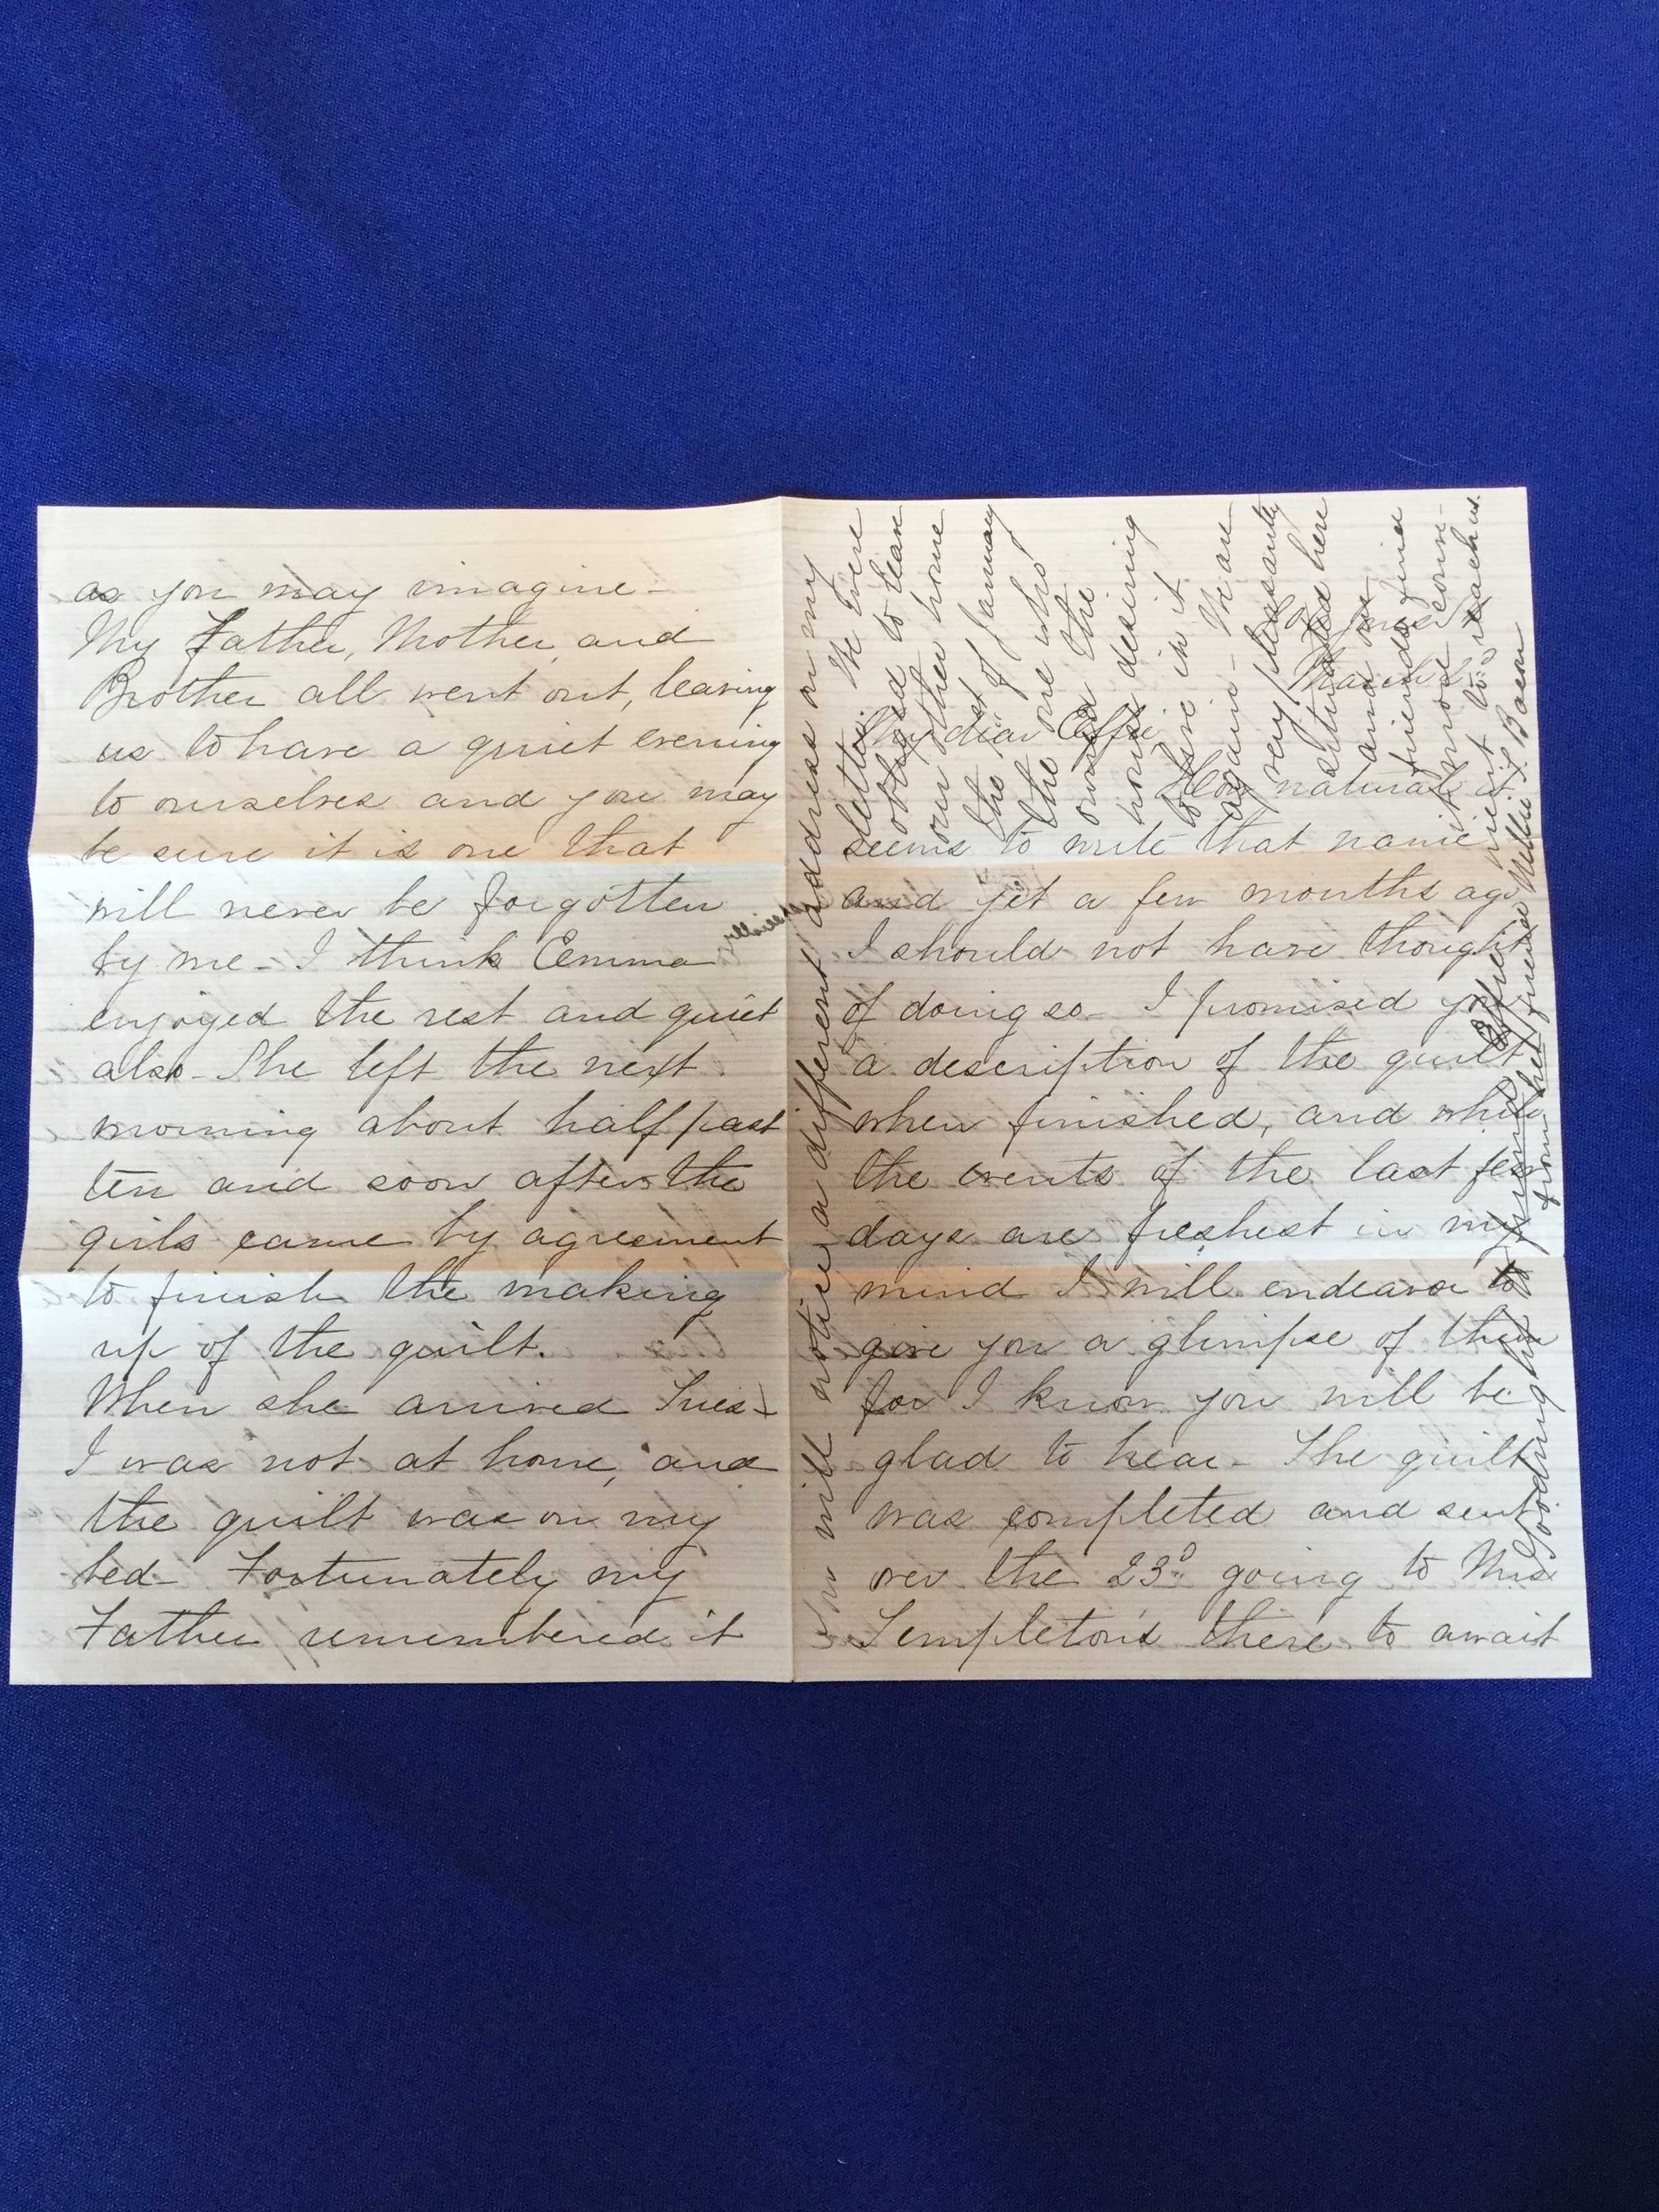 as you may imagine-
My Father, Mother, and
Brother all went out, leaving
us to have a quiet evening
to ourselves and you may
be sure it is one that
will never be forgotten
by me - I think Emma
enjoyed the rest and quiet
also - She left the next
morning about half past
ten and soon after the
girls came by agreement
to finish the making
up of the quilt.
When she arrived Tues-
I was not at home, and
the quilt was on my
bed - Fortunately my
Father remembered it
My dear Effie
How natural it
seems to write that name
and yet a few months ago
I should not have thought
of doing so - I promised you
a description of the quilt
when finished, and while
the events of the last few
days are freshest in my
mind I will endeavor to
give you a glimpse of them
for I know you will be
glad to hear - The quilt
was completed and sent
over the 23d going to Mrs
Templeton's there to await
You will notice a different address on my
letter. We were
obliged to leave
our other home
the 1st of January
the one who
owned the
house desiring
to live in it
again - We are
very pleasantly
situated here
and our
friends find
it more conve-
nient to reach us.
Goodnight to precious Effie
from her friend Nellie F. Bacon